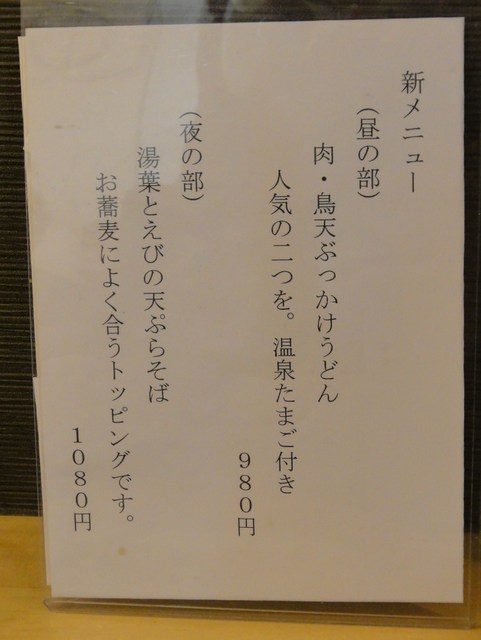 新メニュー
（昼の部）
肉・鳥天ぶっかけうどん
人気の二つを。温泉たまご付き
９８０円
（夜の部）
湯葉とえびの天ぷらそば
お蕎麦によく合うトッピングです。
１０８０円